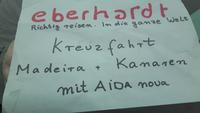 eberhardt
Richtig reisen. In die ganze Welt
Kreuzfahrt
Madeira + Kanaren
mit AIDA nova